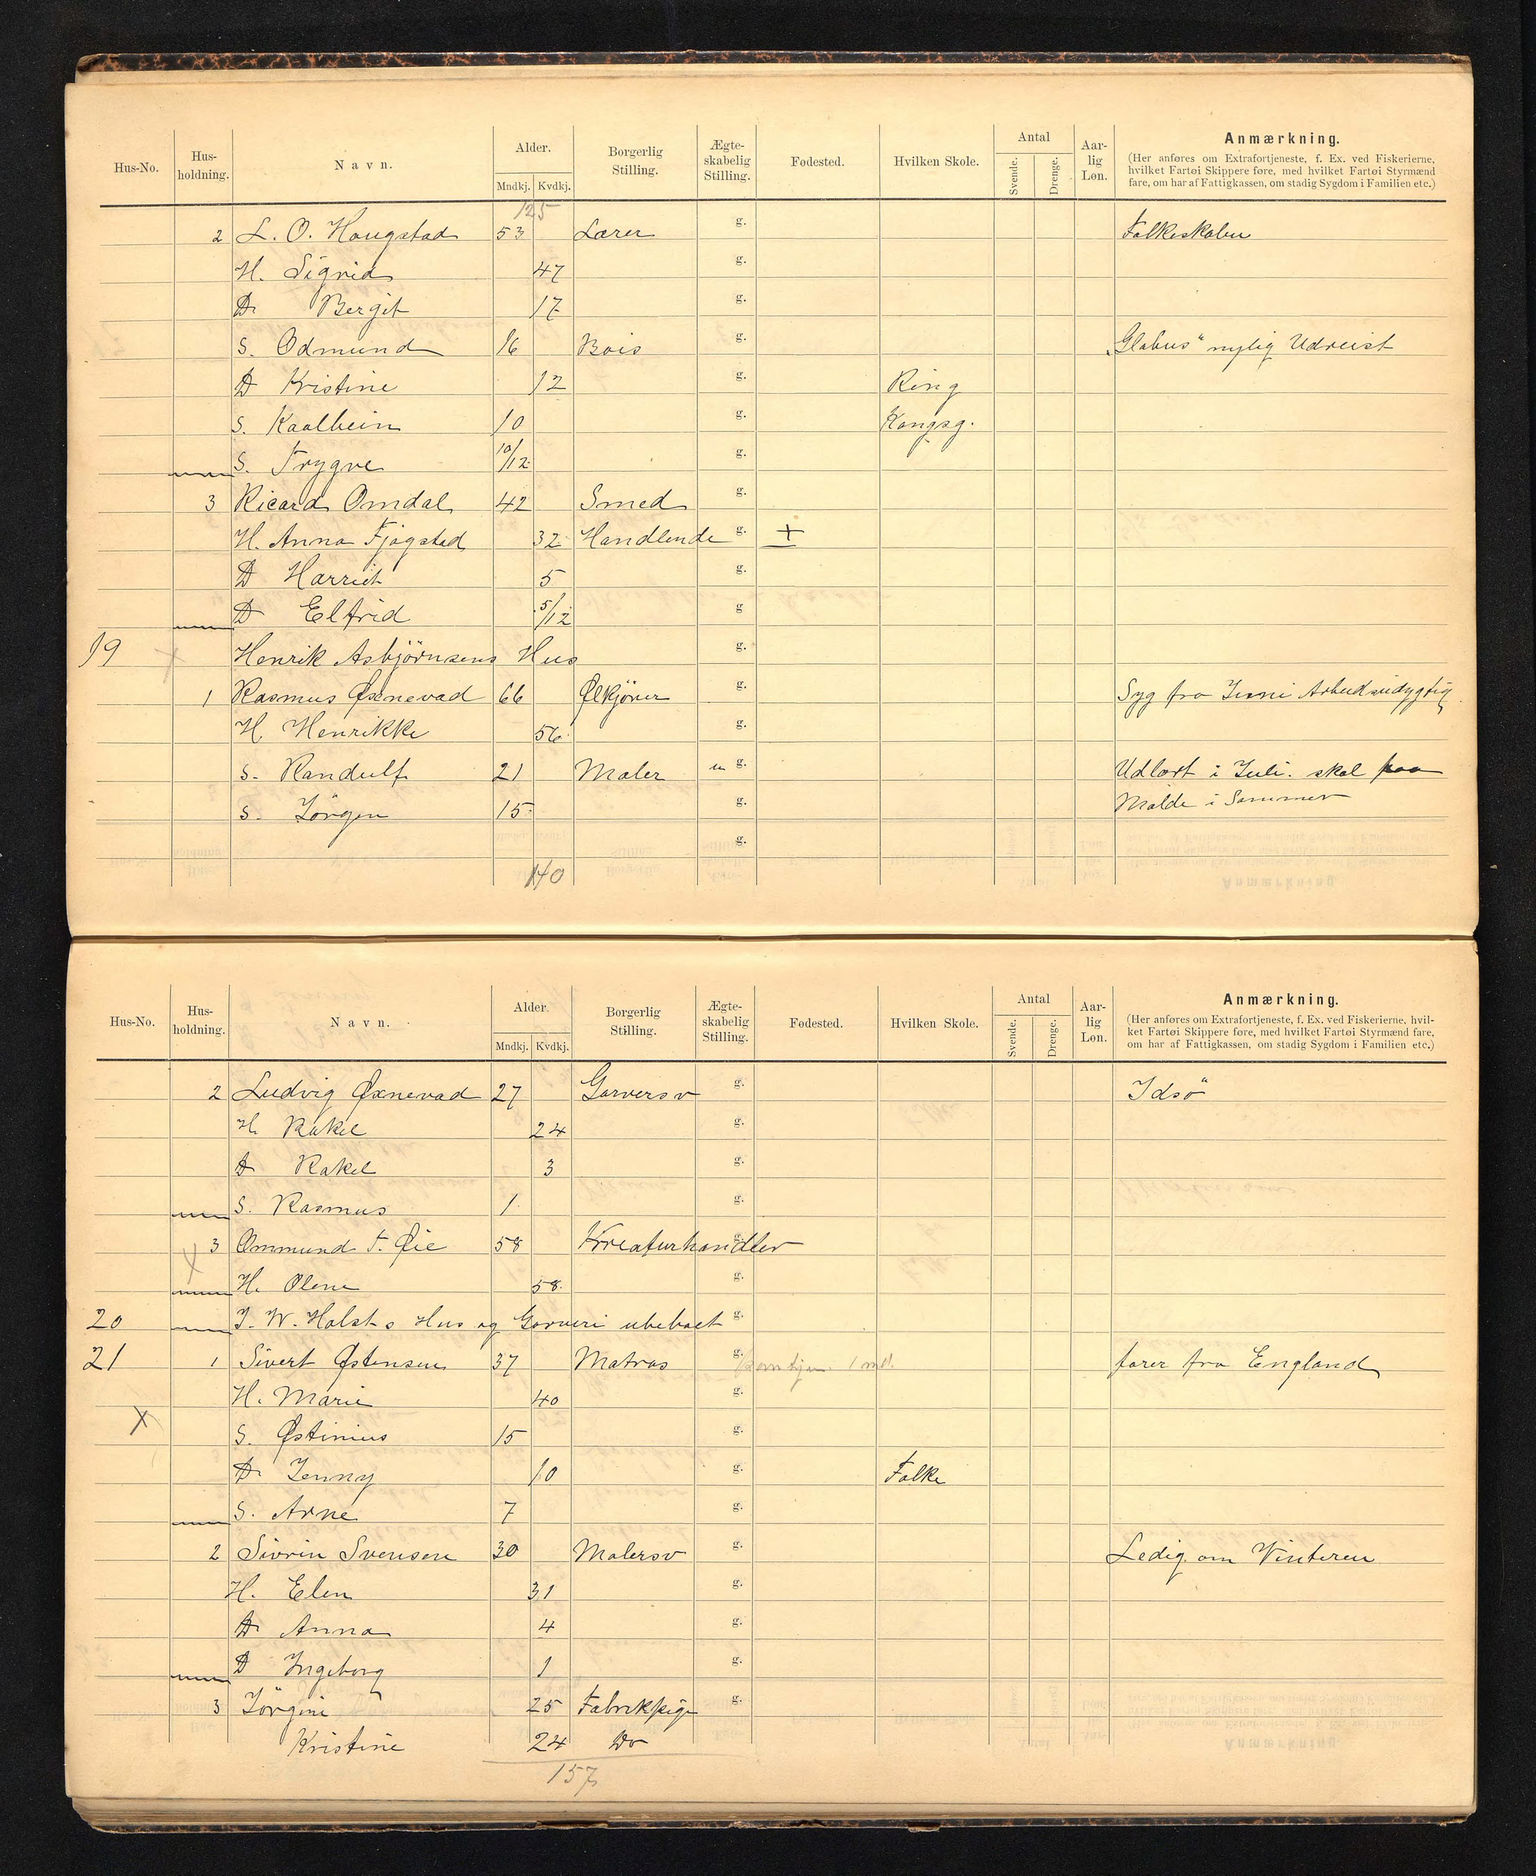 Hus-No. Hus-holdning. Navn. Alder. Mndkj. Kvdkj. Borgerlig Stilling. Ægte-skabelig Stilling. Fødested. Hvilken Skole. Antal Svende. Drenge. Aar-lig Løn. Anmærkning.
(Her anføres om Extrafortjeneste, f. Ex. ved Fiskerierne,
hvilket Fartøi Skippere føre, med hvilket Fartøi Styrmænd
fare, om har af Fattigkassen, om stadig Sygdom i Familien etc.)
125
2 L. O. Haugstad 53 Lærer g. Folkeskolen
H. Sigrid 47 g.
D. Bergit 17 g.
S. Odmund 16 Bois g. „Globus" nylig Udreist
D Kristine 12 g. Ring
S. Kaalbein 10 g. Kongsg.
S. Trygve 10/12 g.
3 Ricard Omdal 42 Smed g.
H. Anna Fjogstad 32 Handlende g. +
D Harriet 5 g.
D Elfrid 5/12 g
19 Henrik Asbjörnsens Hus g.
1 Rasmus Øxnevad 66 Ølkjörer g. Syg fra Juni Arbeidsudygtig
H. Henrikke 56 g.
S. Randulf 21 Maler u g. Udlært i Juli. skal paa
S. Jörgen 15 g. Molde i Sommer
g.
140
Hus-No. Hus-holdning. Navn. Alder. Mndkj. Kvdkj. Borgerlig Stilling. Ægte-skabelig Stilling. Fødested. Hvilken Skole. Antal Svende. Drenge. Aar-lig Løn. Anmærkning.
(Her anføres om Extrafortjeneste, f. Ex. ved Fiskerierne, hvil-
ket Fartøi Skippere føre, med hvilket Fartøi Styrmænd fare,
om har af Fattigkassen, om stadig Sygdom i Familien etc.)
2 Ludvig Øxnevad 27 Garversv g. Idsö
H. Rakel 24 g.
D Rakel 3 g.
S. Rasmus 1 g.
X 3 Ommund T. Øie 58 Kreaturhandler g.
H. Olene 58 g.
20 J. W. Holsts Hus og Garveri ubeboet g.
21 1 Sivert Østensen 37 Matros g. 1 md. farer fra England
H. Marie 40 g.
X S. Østinius 15 g.
D. Jenny 10 g. Folke
S. Arne 7 g.
2 Sivrin Svensen 30 Malersv g. Ledig om Vinteren
H. Elen 31 g.
D. Anna 4 g.
D Ingeborg 1 g.
3 Jörgine 25 Fabrikpige g.
Kristine 24 Do
157